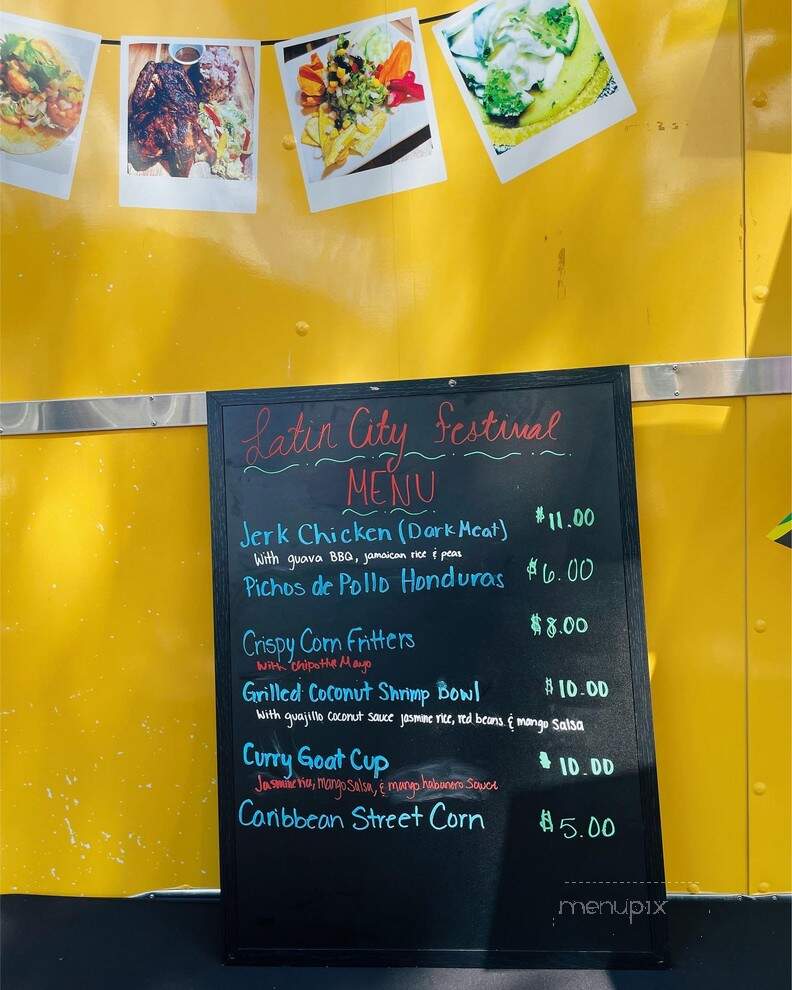 Latin City Festival
MENU
Jerk Chicken (Dark Meat) $11.00
With guava BBQ, jamaican rice & peas
Pichos de Pollo Honduras $6.00
Crispy Corn Fritters $8.00
With Chipotle Mayo
Grilled Coconut Shrimp Bowl $10.00
With guajillo coconut sauce jasmine rice, red beans & mango Salsa
Curry Goat Cup $10.00
Jasmine rice, mango salsa, & mango habanero sauce
Caribbean Street Corn $5.00
menupix